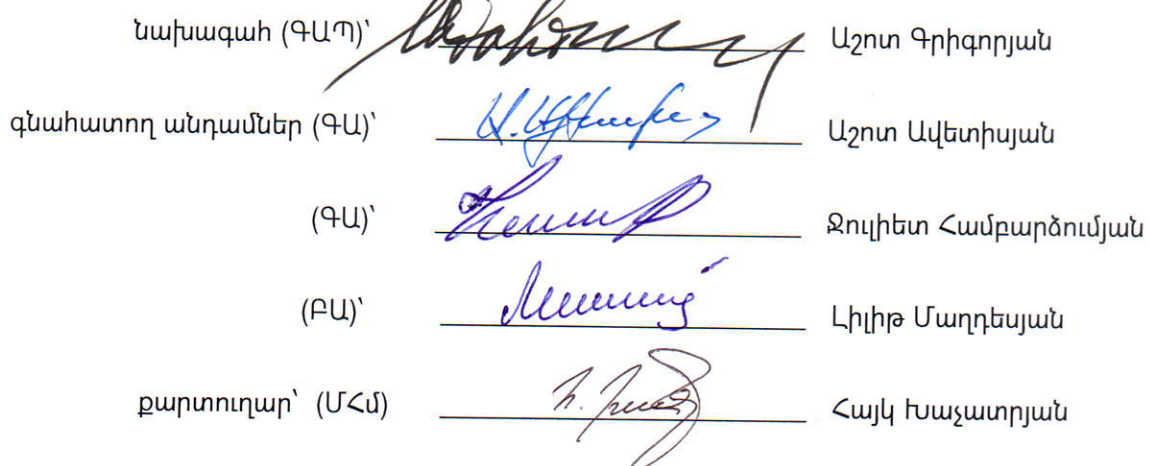 նախագահ (ԳԱՊ)՝ Աշոտ Գրիգորյան
գնահատող անդամներ (ԳԱ)՝ Աշոտ Ավետիսյան
(ԳԱ)՝ Ջուլիետ Համբարձումյան
(ԲԱ)՝ Լիլիթ Մաղդեսյան
քարտուղար՝ (ՄՀմ) Հայկ Խաչատրյան